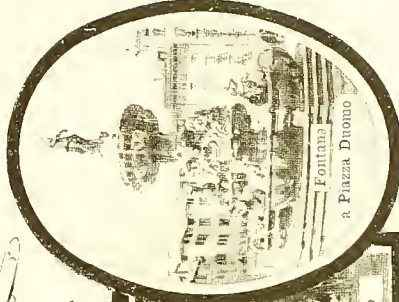 Fontana
a Piazza Duomo